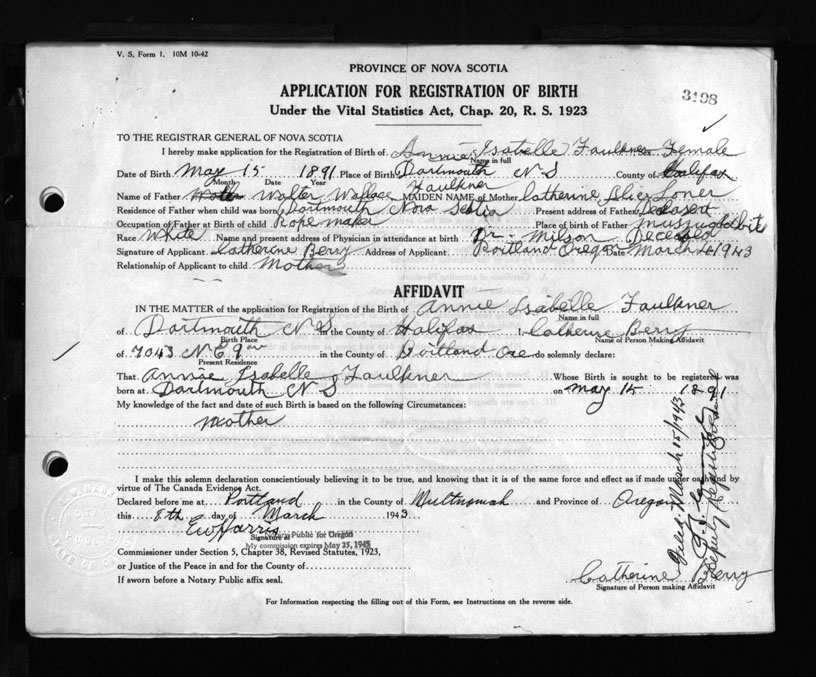 V. S. Form 1. 10M 10-42
PROVINCE OF NOVA SCOTIA
APPLICATION FOR REGISTRATION OF BIRTH
3198
Under the Vital Statistics Act, Chap. 20, R. S. 1923
TO THE REGISTRAR GENERAL OF NOVA SCOTIA
I hereby make application for the Registration of Birth of Annie Isabelle Faulkner Female
Name in full
Date of Birth May 15 1891 Place of Birth Dartmouth N S County of Halifax
Month Date Year
Name of Father Walter Wallace Faulkner MAIDEN NAME of Mother Catherine Alice
Residence of Father when child was born Dartmouth Nova Scotia Present address of Father
Occupation of Father at Birth of child Rope maker Place of birth of Father
Race White Name and present address of Physician in attendance at birth Dr. Milson Deceased
Signature of Applicant Catherine Berry Address of Applicant Portland Oreg Date March 4 1943
Relationship of Applicant to child Mother
AFFIDAVIT
IN THE MATTER of the application for Registration of the Birth of Annie Isabelle Faulkner
Name in full
of Dartmouth N S in the County of Halifax I, Catherine Berry
Birth Place Name of Person Making Affidavit
of 7043 N.E. 9 av in the County of Portland Ore do solemnly declare:
Present Residence
That Annie Isabelle Faulkner Whose Birth is sought to be registered was
born at Dartmouth N S on May 15 1891
My knowledge of the fact and date of such Birth is based on the following Circumstances:
Mother
I make this solemn declaration conscientiously believing it to be true, and knowing that it is of the same force and effect as if made under oath and by
virtue of The Canada Evidence Act.
Declared before me at Portland in the County of Multnomah and Province of Oregon
this 8th day of March 1943
EW Harris
Signature of Notary Public for Oregon
My commission expires May 25, 1945
Commissioner under Section 5, Chapter 38, Revised Statutes, 1923,
or Justice of the Peace in and for the County of
If sworn before a Notary Public affix seal.
Catherine Berry
Signature of Person making Affidavit
For Information respecting the filling out of this Form, see Instructions on the reverse side.
Filed March 15/1943
Deputy Registrar General